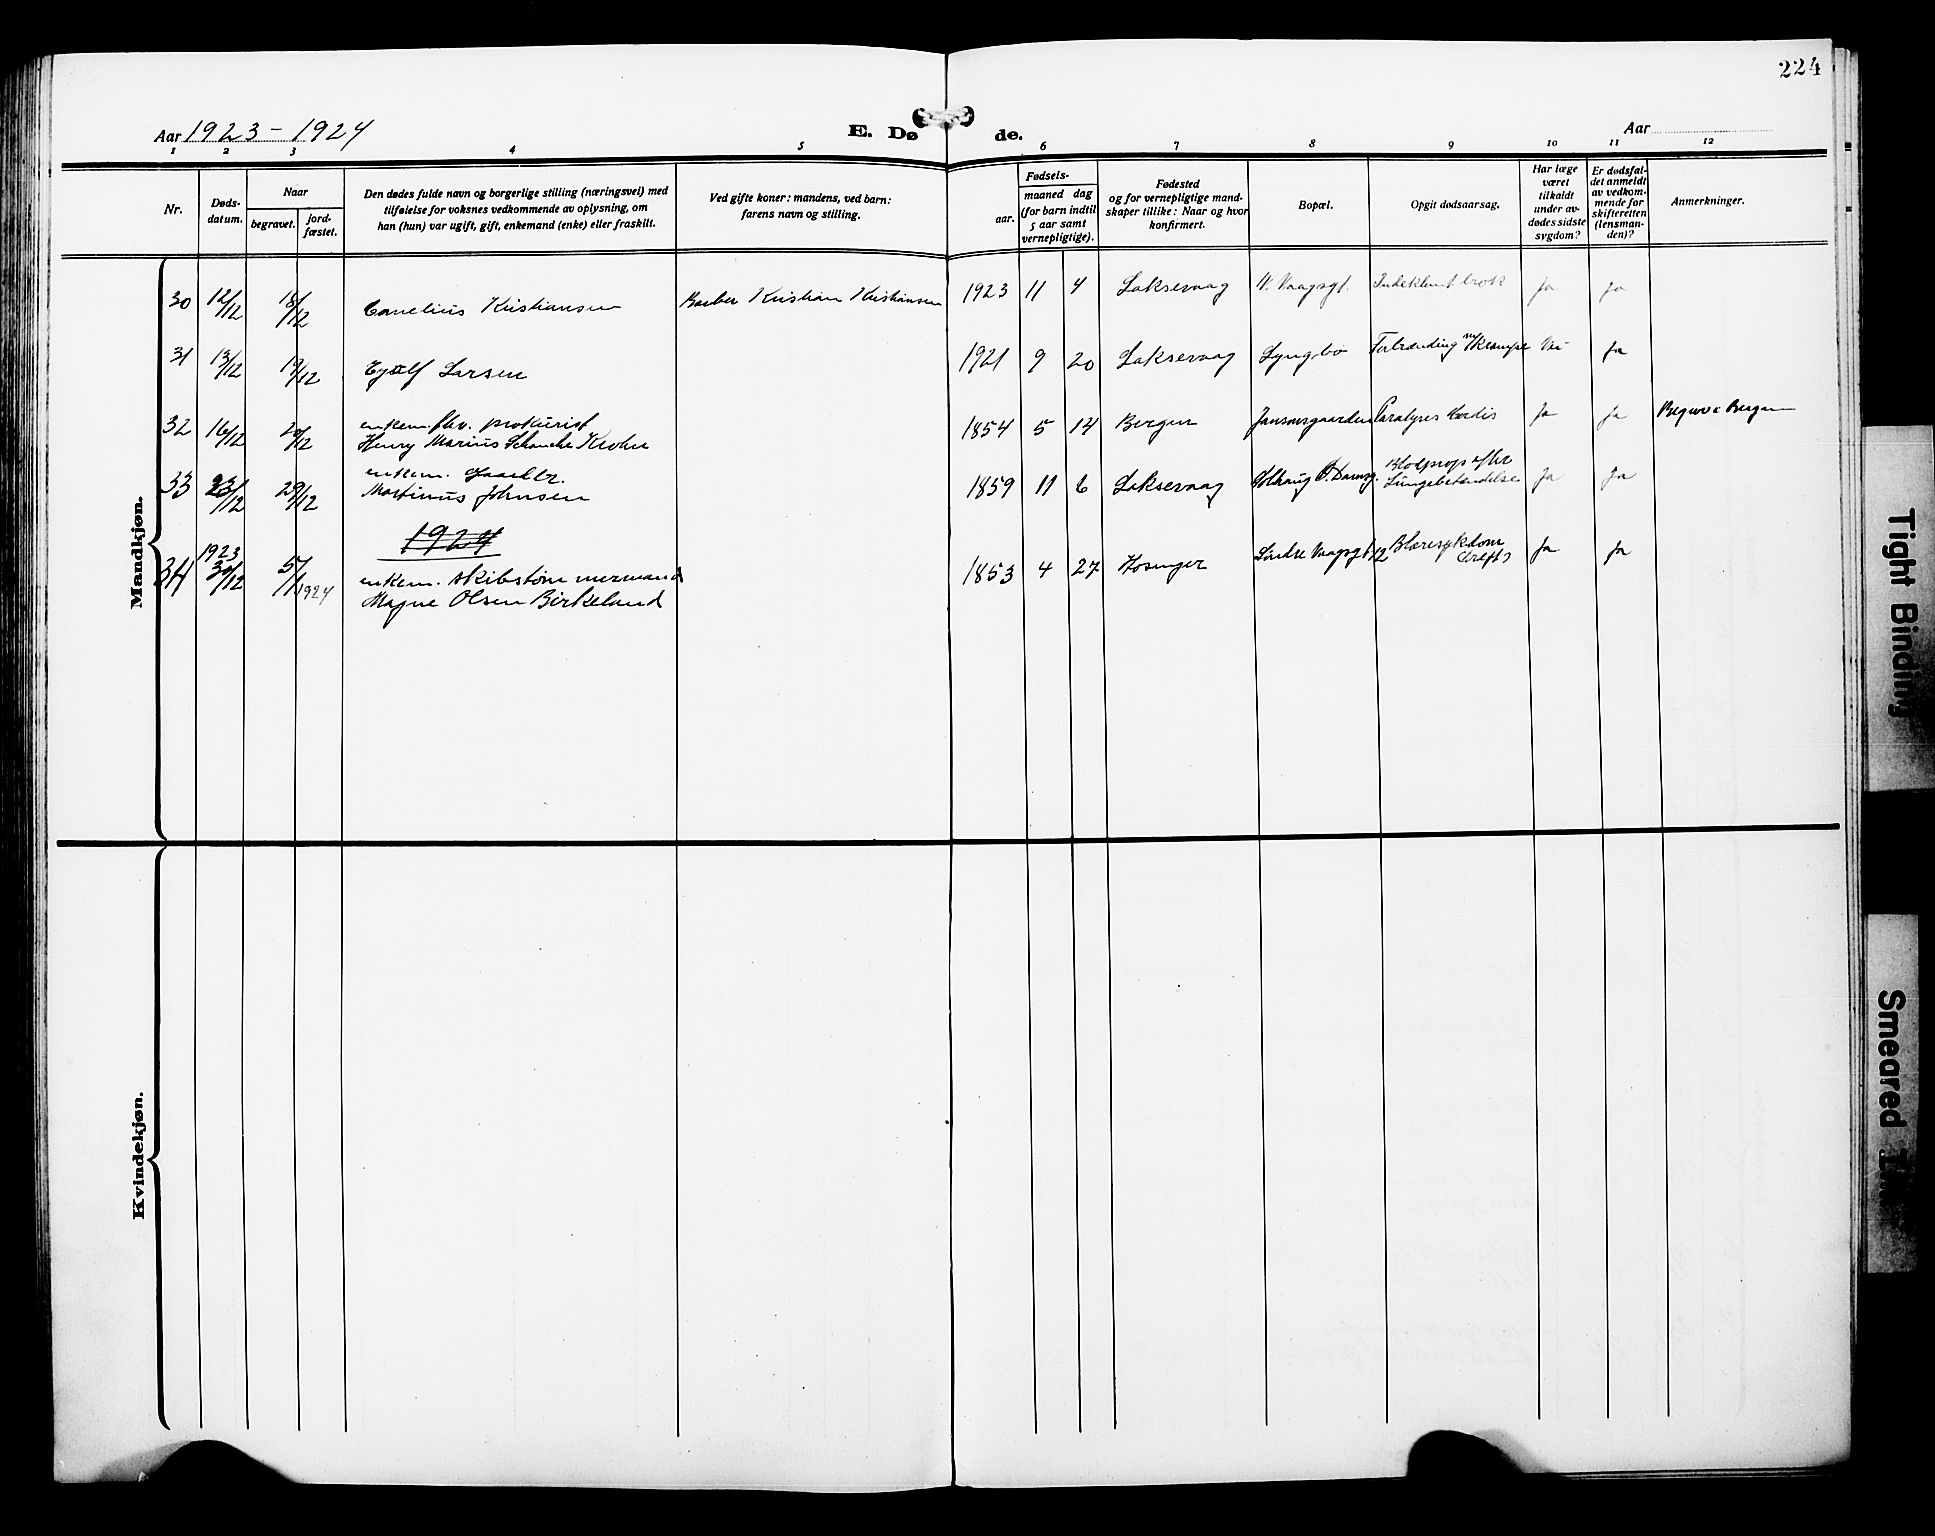 224
Aar 1923-1924
E. Dø de.
Aar
1 2 3 4 5 6 7 8 9 10 11 12
Nr.
Døds-
datum.
Naar
begravet.
jord-
fæstet.
Den dødes fulde navn og borgerlige stilling (næringsvei) med
tilføielse for voksnes vedkommende av oplysning, om
han (hun) var ugift, gift, enkemand (enke) eller fraskilt.
Ved gifte koner: mandens, ved barn:
farens navn og stilling.
Fødsels-
aar.
maaned dag
(for barn indtil
5 aar samt
vernepligtige).
Fødested
og for vernepligtige mand-
skaper tillike: Naar og hvor
konfirmert.
Bopæl.
Opgit dødsaarsag.
Har læge
været
tilkaldt
under av-
dødes sidste
sygdom?
Er dødsfal-
det anmeldt
av vedkom-
mende for
skifteretten
(lensman-
den)?
Anmerkninger.
Mandkjøn.
30 12/12 18/12 Cornelius Kristiansen Barber Kristian Kristiansen 1923 11 4 Laksevaag V. Vaagsgt. Indeklemt brok ja ja
31 13/12 19/12 Larsen 1921 9 20 Laksevaag Lyngbø Forbrænding m/krampe Nei ja
32 16/12 20/12 enkem. fhv. prokurist
Henry Marius Schanche Krohn 1854 5 14 Bergen Jansonsgaarden Paralysis Cordis ja ja Begrav. i Bergen
33 23/12 29/12 enkem. Gaardbr.
Martinus Johnsen 1859 11 6 Laksevaag Solhaug Damsg. Blodprop efter
Lungebetændelse ja ja
1924
34 1923 30/12 5/1 1924 enkem. skibstømmermand
Magne Olsen Birkeland 1853 4 27 Hosanger Søndre Vaagsgt. 12 Blæresykdom
ja ja
Kvindekjøn.
Tight Binding
Smeared